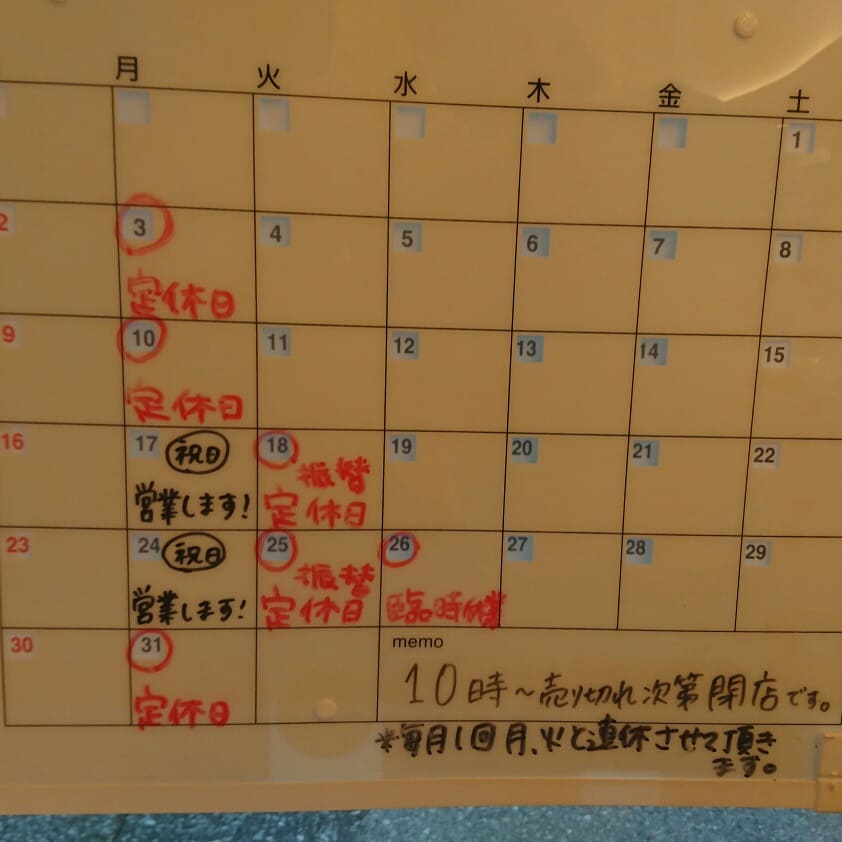 月 火 水 木 金 土
1
2 3 4 5 6 7 8
定休日
9 10 11 12 13 14 15
定休日
16 17 祝日 18 19 20 21 22
振替
営業します! 定休日
23 24 祝日 25 26 27 28 29
振替
営業します! 定休日 臨時休業
30 31 memo
定休日 10時~売り切れ次第閉店です。
*毎月1回月、火と連休させて頂き
ます。